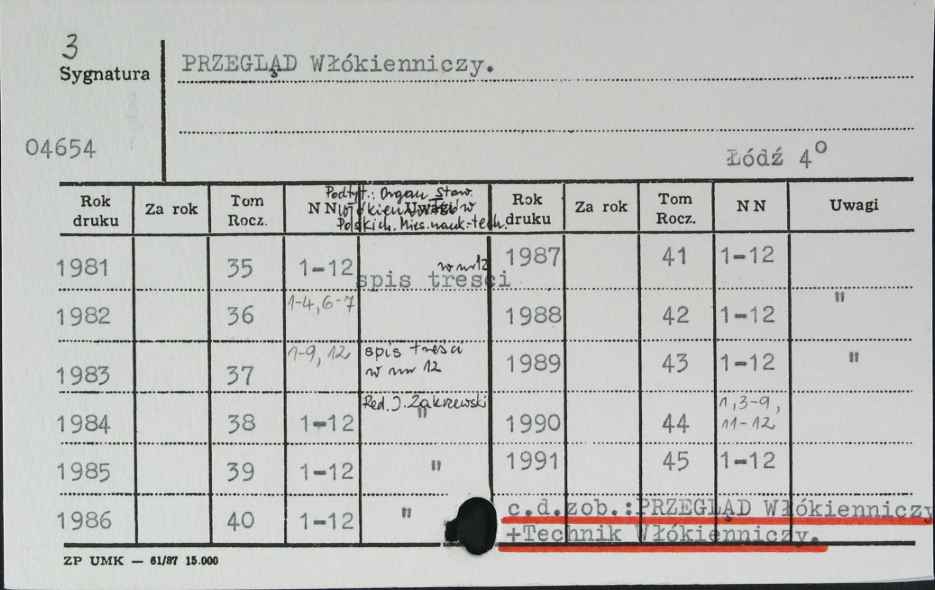 3
Sygnatura
PRZEGLĄD Włókienniczy.
04654
Łódź 4º
Podtyt.: Organ Stow.
Włókienników
Polskich. Mies. nauk.-tech.
Rok druku Za rok Tom Rocz. N N Uwagi Rok druku Za rok Tom Rocz. N N Uwagi
1981 35 1-12 spis treści w nr 12 1987 41 1-12
1982 36 1-4, 6-7 1988 42 1-12 "
1983 37 1-9, 12 spis treści w nr 12 1989 43 1-12 "
1984 38 1-12 Red. J. Zakrzewski " 1990 44 1, 3-9, 11-12
1985 39 1-12 " 1991 45 1-12
1986 40 1-12 " c.d.zob.:PRZEGLĄD Włókienniczy
+Technik Włókienniczy.
ZP UMK — 61/87 15.000